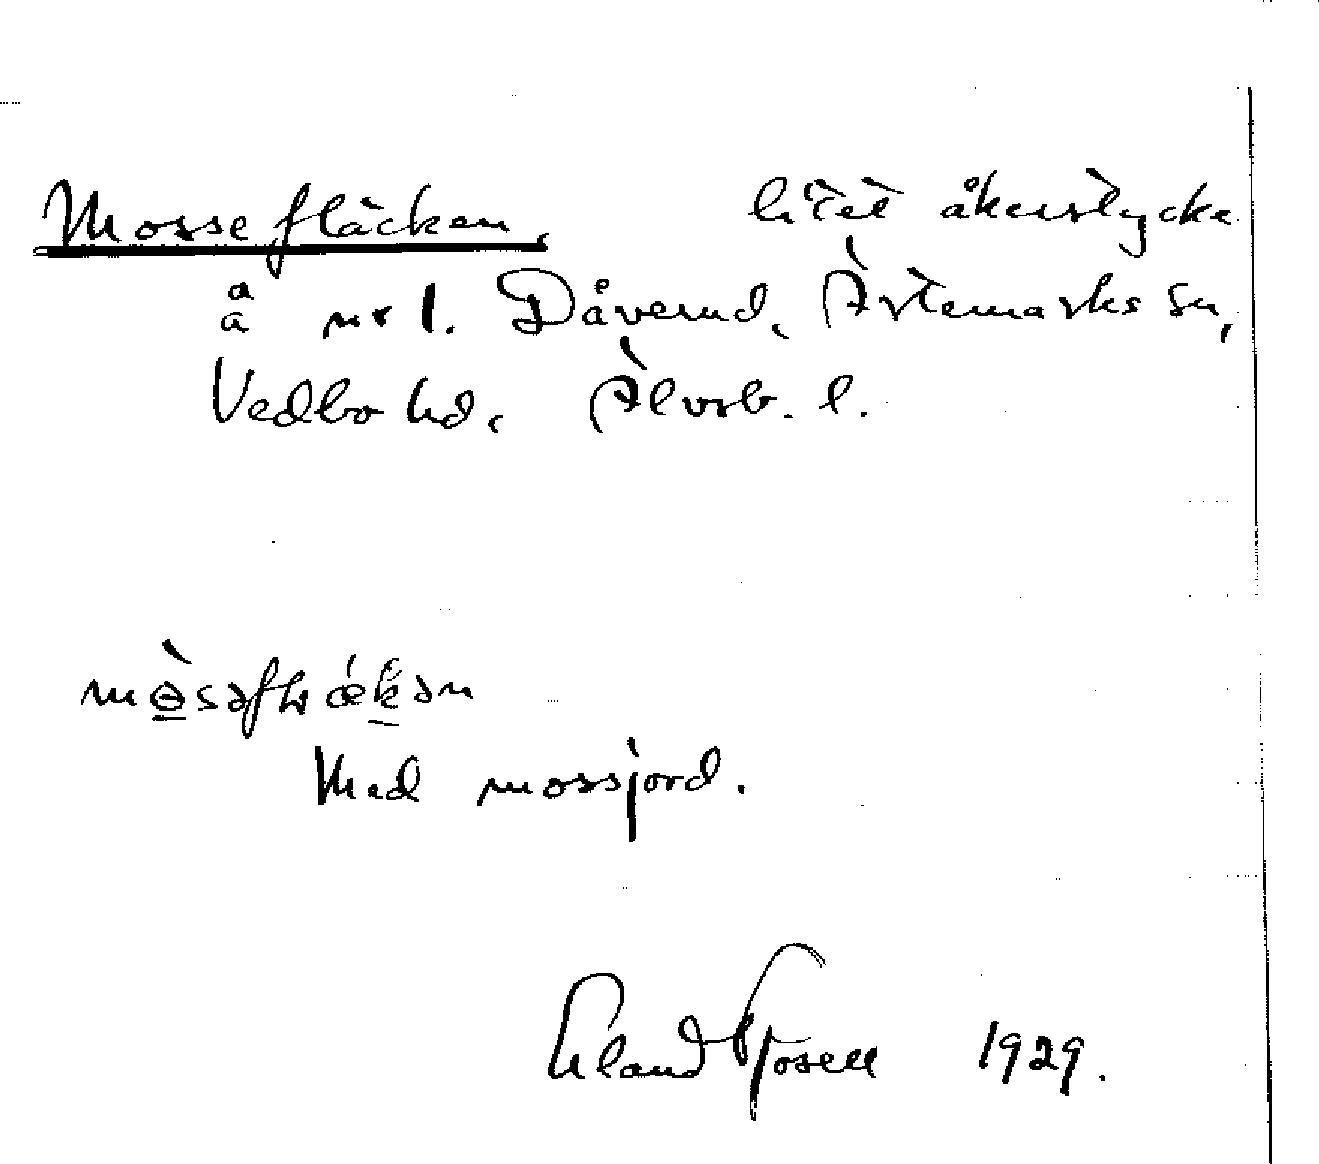 Mossefläcken, litet åkerstycke
å nr 1. Dåverud, Ärtemarks sn,
Vedbo hd, Älvsb. l.
Med mossjord.
Erland Rosell 1929.